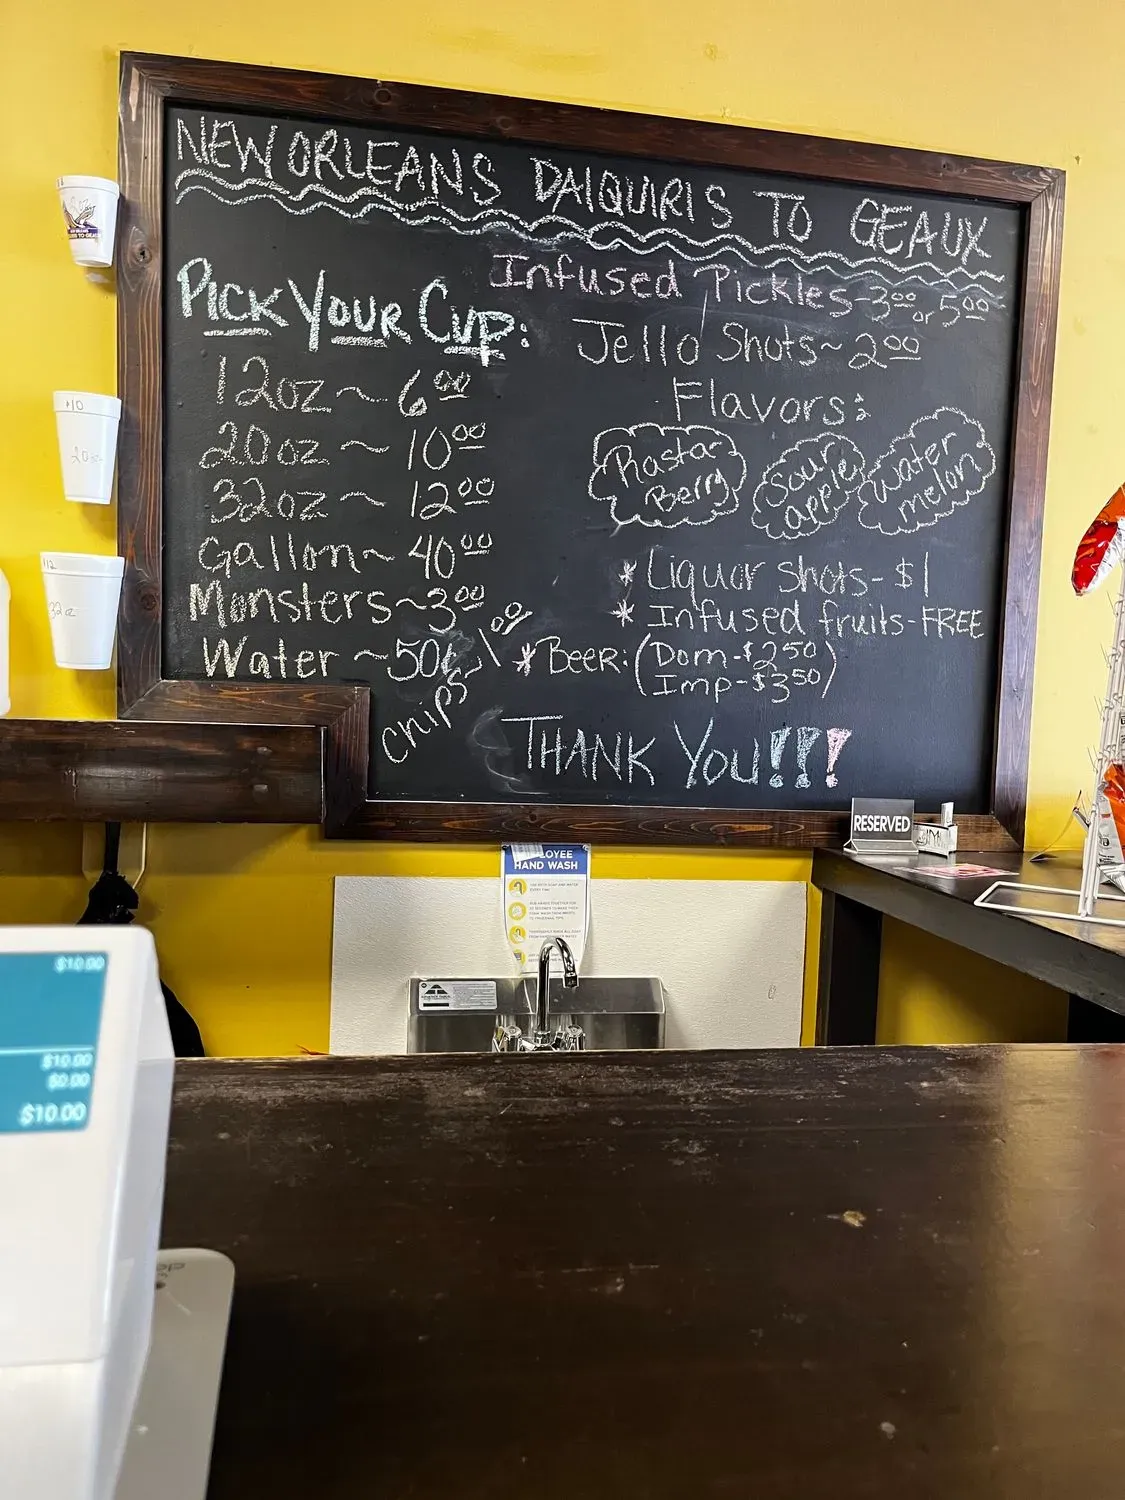 NEW ORLEANS DAIQUIRIS TO GEAUX
PICK YOUR CUP:
12oz ~ 6.00
20oz ~ 10.00
32oz ~ 12.00
Gallon ~ 40.00
Monsters ~ 3.00
Water ~ 50¢
Chips - 1.00
Infused Pickles - 3.00 or 5.00
Jello Shots ~ 2.00
Flavors:
Rasta-
Berry
Sour
apple
Water
melon
* Liquor shots - $1
* Infused fruits - FREE
* Beer: (Dom - $2.50
Imp - $3.50)
THANK YOU!!!
$10
20oz
32oz
RESERVED
EMPLOYEE
HAND WASH
$10.00
$10.00
$0.00
$10.00